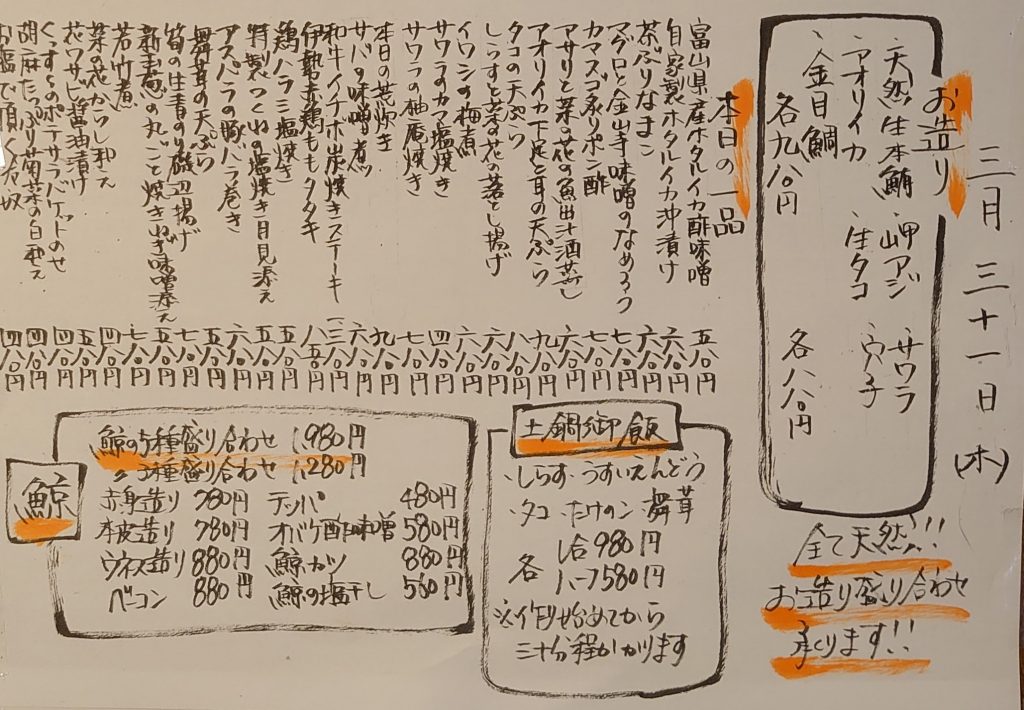 三月三十一日(木)
お造り
・天然生本鮪 ・岬アジ ・サワラ
・アオリイカ ・生タコ ・穴子
・金目鯛
各九八〇円 各八八〇円
全て天然!!
お造り盛り合わせ
承ります!!
本日の一品
富山県産ホタルイカ酢味噌 五八〇円
自家製ホタルイカ沖漬け 六八〇円
茶ぶりなまこ 六八〇円
マグロと金山寺味噌のなめろう 七八〇円
カマスゴ炙りポン酢 七八〇円
アサリと菜の花の魚出汁酒蒸し 六八〇円
アオリイカ下足と耳の天ぷら 九八〇円
タコの天ぷら 八八〇円
しらすと菜の花の落とし揚げ 六八〇円
イワシの梅煮 六八〇円
サワラのカマ塩焼き 四八〇円
サワラの柚庵焼き 七八〇円
本日の荒炊き 九八〇円
サバの味噌煮 六八〇円
和牛イチボ炭焼きステーキ 一三八〇円
伊勢赤鶏ももタタキ 八五〇円
鶏ハラミ塩焼き 五八〇円
特製つくねの塩焼き 月見添え 五五〇円
アスパラの豚バラ巻き 六八〇円
舞茸の天ぷら 五八〇円
筍の生青のり磯辺揚げ 七八〇円
新玉葱の丸ごと焼き ねぎ味噌添え 五八〇円
若竹煮 七八〇円
菜の花からし和え 四八〇円
花ワサビ醤油漬け 五八〇円
くんすらのポテサラバケットのせ 四八〇円
胡麻たっぷり菊菜の白和え 四八〇円
お塩で頂く冷奴 四八〇円
土鍋御飯
・しらす・うすいえんどう
・タコ・たけのこ・舞茸
各 1合980円
ハーフ580円
※作り始めてから
三十分程かかります
鯨
鯨の5種盛り合わせ 1,980円
〃3種盛り合わせ 1,280円
赤身造り 780円 テッパ 480円
本皮造り 780円 オバケ酢味噌 580円
ウネス造り 880円 鯨カツ 880円
ベーコン 880円 鯨の塩干し 560円